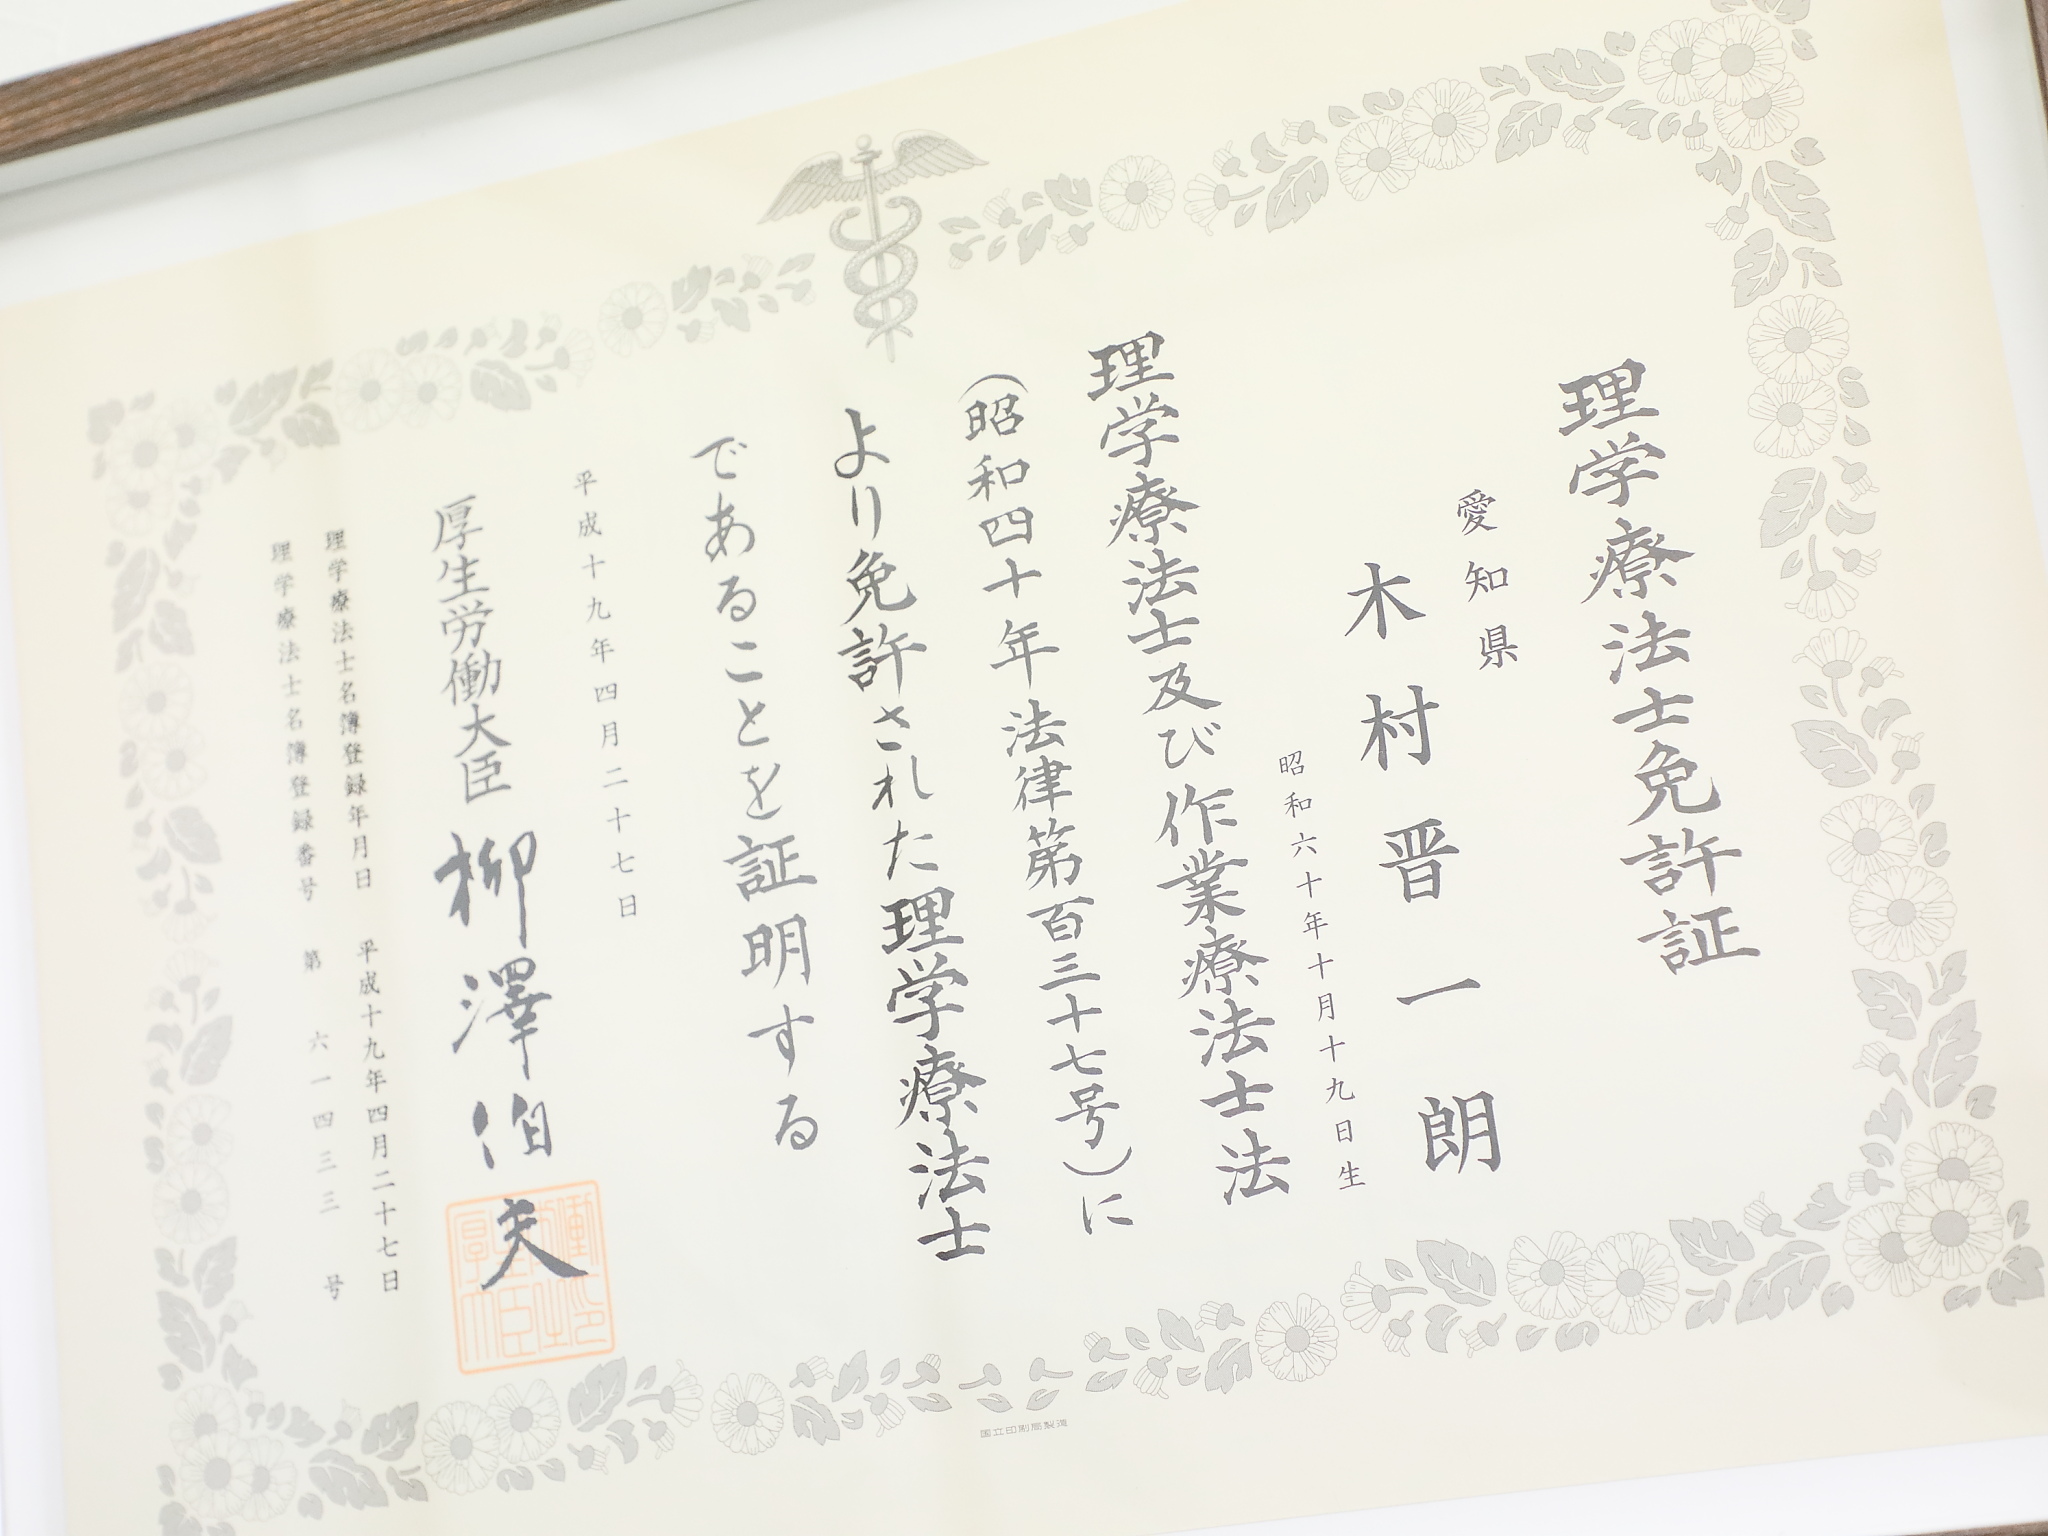 理学療法士免許証
愛知県
木村晋一朗
昭和六十年十月十九日生
理学療法士及び作業療法士法
（昭和四十年法律第百三十七号）に
より免許された理学療法士
であることを証明する
平成十九年四月二十七日
厚生労働大臣 柳澤伯夫
理学療法士名簿登録年月日 平成十九年四月二十七日
理学療法士名簿登録番号 第 六一四三三 号
国立印刷局製造